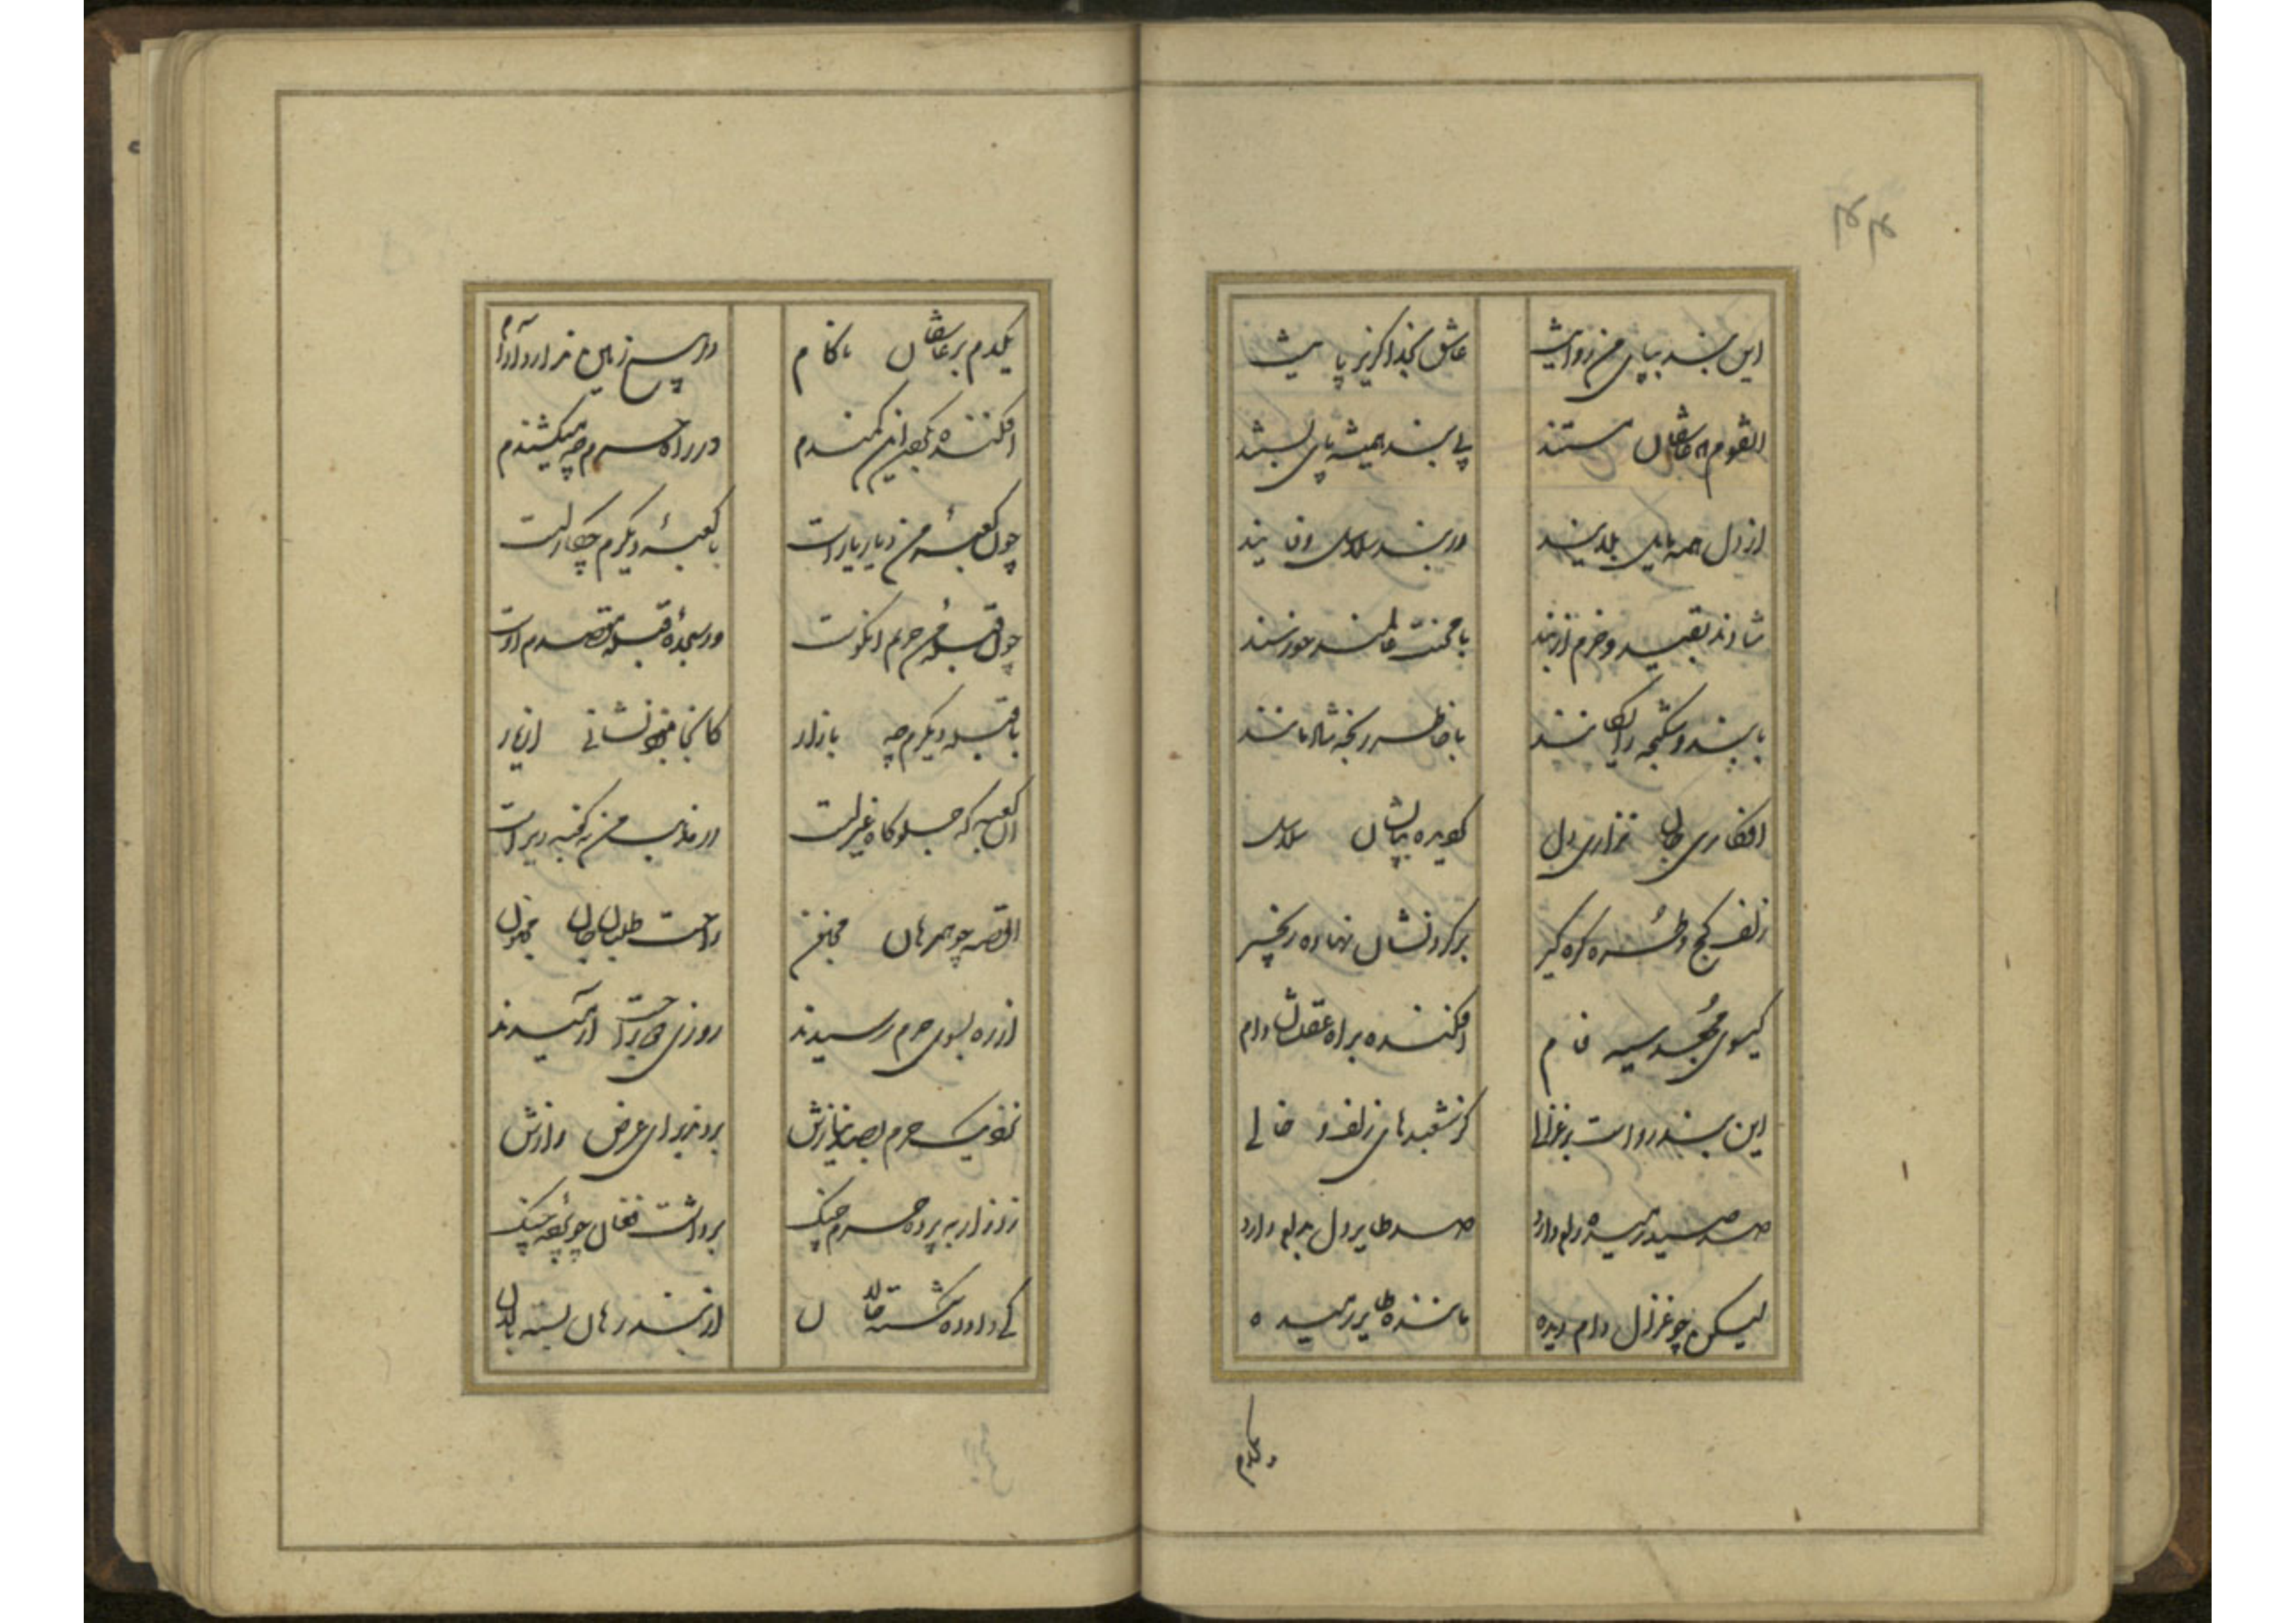 ۴۴
این بند بپای من روا نیست عاشق بخدا گریز پا نیست
القوم که عاشقان مستند پی بند همیشه پای بستند
از دل همه مایل بلایند در بند سلاسل وفایند
شادند بقید و خرم از بند با محنت عالمند خورسند
با بند و شکنجه رایگانند با خاطر رنجه شادمانند
افکاری جان نزاری دل گیرد بپاشان سلاسل
زلف کج و طره گره گیر بر گردنشان نهاده زنجیر
گیسوی مجعد سیه فام افکنده براه عقلشان دام
این بند رواست بر غزالی کز شعبدهای زلف و خالی
صد صید رمیده رام دارد صد طایر دل بدام دارد
لیکن چو غزال دام دیده ماننده طایر رمیده
یکدم
یکدم بر عاشقان ناکام در هیچ زمین ندارد آرام
افکنده بگردن این کمندم در راه حرم چه میکشیندم
چون کعبه من دیار یار است با کعبه دیگرم چکار است
چون قبله من حریم آن کوست در سجده قبله مقصدم اوست
با قبله دیگرم چه بازار کانجا نبود نشانی از یار
آن کعبه که جلوه گاه غیر است در مذهب من نه کعبه دیر است
القصه چو همرهان محزن راحت طلبان جان مجنون
از ره بسوی حرم رسیدند روزی دو براحت آرمیدند
نزدیک حرم بصد نیازش بردند برای عرض رازش
زد زار به پرده حرم چنگ برداشت فغان چو نغمه چنگ
کی داور گشته حالان از بند رهان بسته بالان